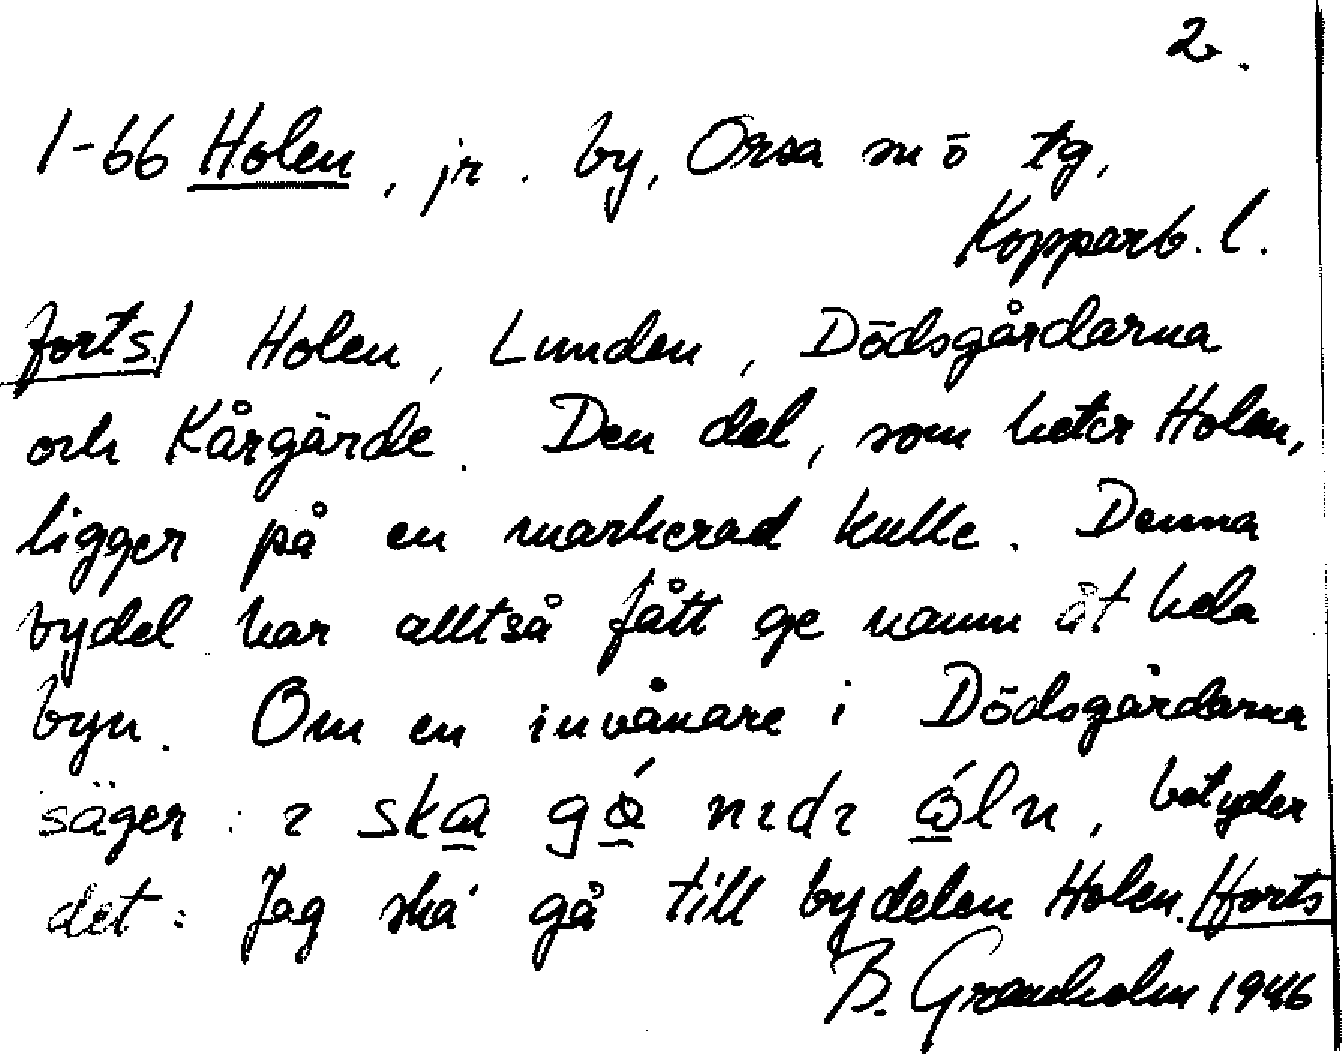 2.
1-66 Holen, jr. by, Orsa sn ö tg,
Kopparb. l.
forts./ Holen, Lunden, Dödsgårdarna
och Kårgärde. Den del, som heter Holen,
ligger på en markerad kulle. Denna
bydel har alltså fått ge namn åt hela
byn. Om en invånare i Dödsgårdarna
säger: ska betyder
det: Jag ska gå till bydelen Holen. /forts
B. Granholm 1946